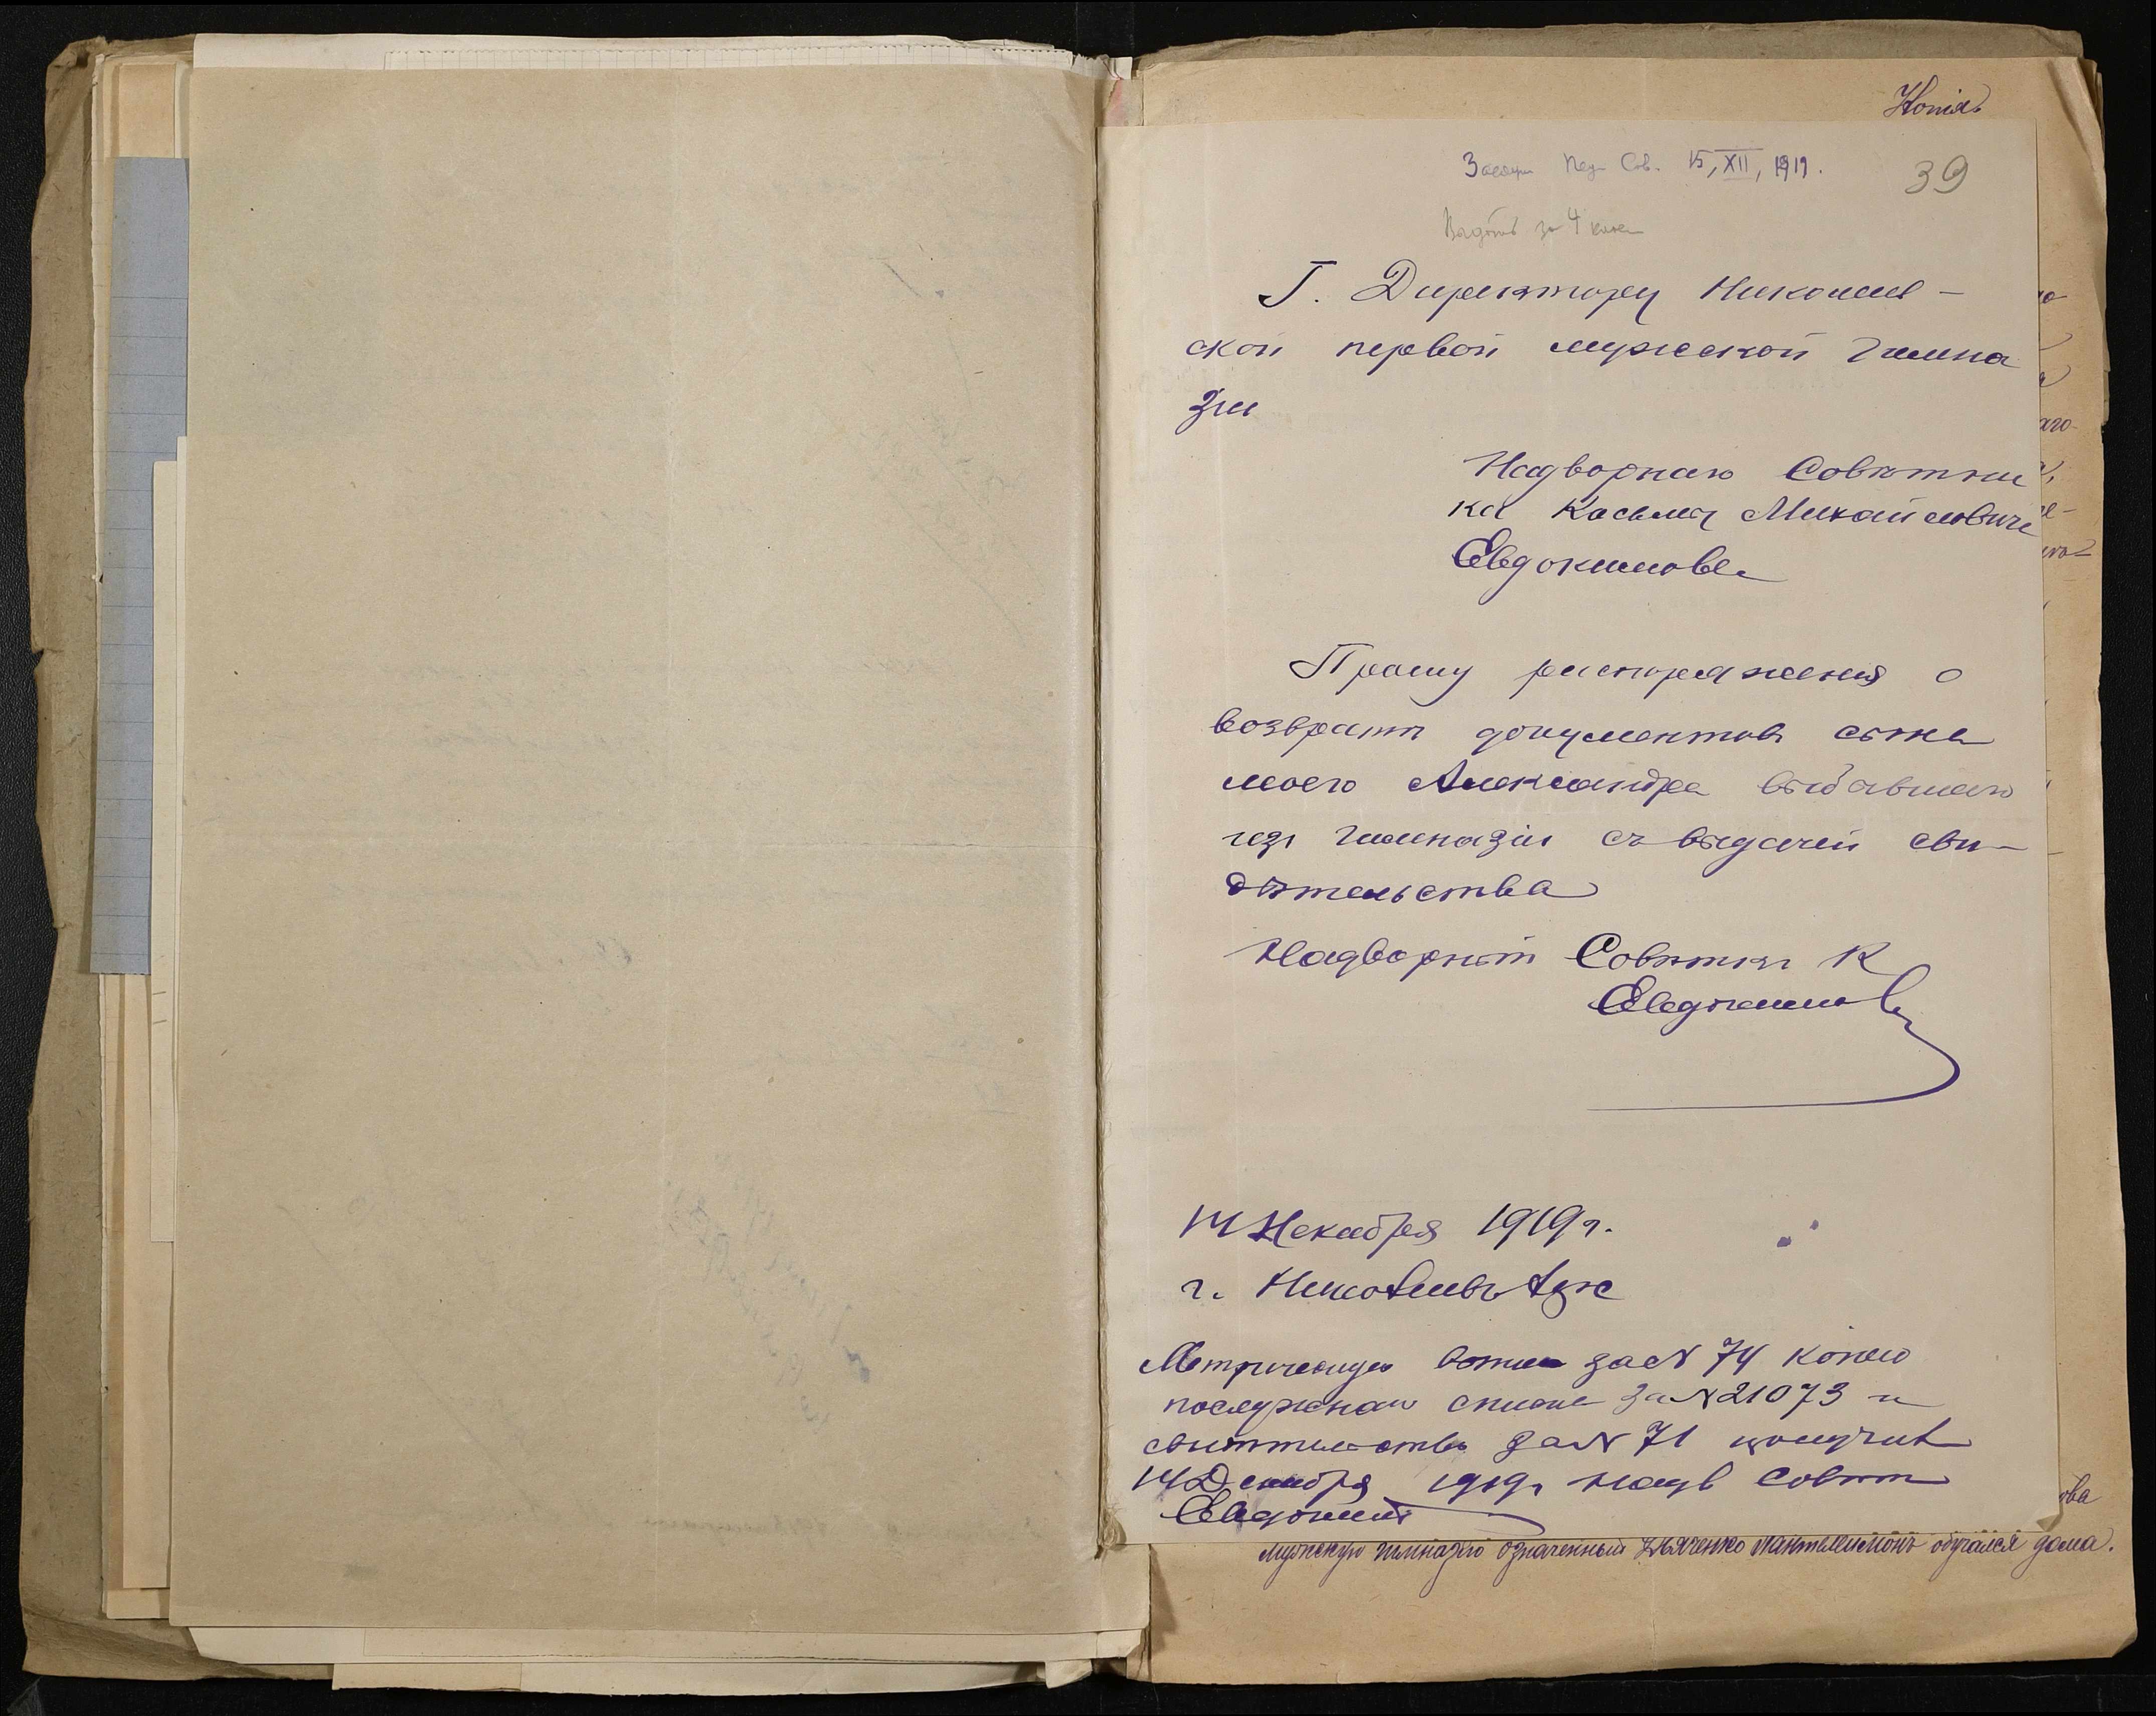 Копія
Засѣд. Пед. Сов. 15, XII, 1919.
39
за 4 класса
Г. Директору Николаев-
ской первой мужской Гимна
зіи
Надворнаго Совѣтни
ка Касьма Михайловича
Евдокимова
Прошу распоряженія о
возвратѣ документовъ сына
моего Александра выбавшаго
изъ Гимназіи съ выдачей сви-
дѣтельства
Надворный Совѣтникъ К
Евдокимовъ
14 Декабря 1919 г.
г. Николаевъ
Метрическую за № 74 копію
послужнаго списка за № 21073 и
свидѣтельство за № 71 получилъ
14 Декабря 1919 г Надв Совѣт
Евдокимовъ
мужскую гимназію означенный Дьяченко Пантелеимонъ обучался дома.